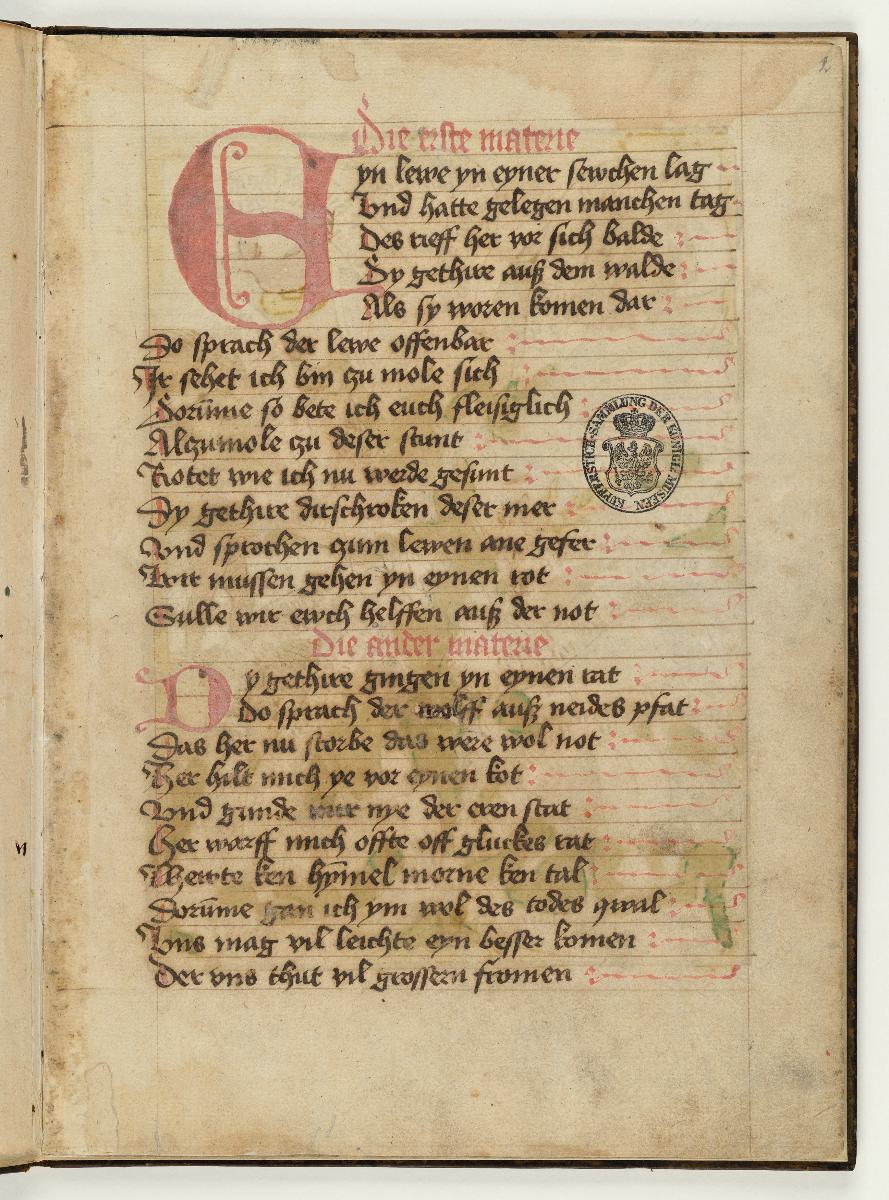 2
Die erste materie
Eyn lewe yn eyner sewchen lag
Vnd hatte gelegen manchen tag
Des rieff her vor sich balde
Dy gethire auß dem walde
Als sy woren komen dar
Do sprach der lewe offenbar
Ir sehet ich bin zu mole sich
Dorūme so bete ich euch fleisiglich
Alzumole zu deser stunt
Rotet wie ich nu werde gesunt
Dy gethire dirschroken deser mer
Vnd sprochen zum lewen ane gefer
Wir mussen gehen yn eynen rot
Sulle wir ewch helffen auß der not
Die ander materie
Dy gethire gingen yn eynen rat
Do sprach der wolff auß neides pfat
Das her nu storbe das were wol not
Her hilt mich ye vor eynen kot
Vnd gunde mir nye der eren stat
Her warff mich offte off gluckes rat
Hewte ken hȳmel morne ken tal
Dorūme gan ich ym wol des todes qwal
Vns mag vil leichte eyn besser komen
Der vns thut vil grossern fromen
KUPFERSTICH-SAMMLUNG DER KÖNIGL. MUSEEN